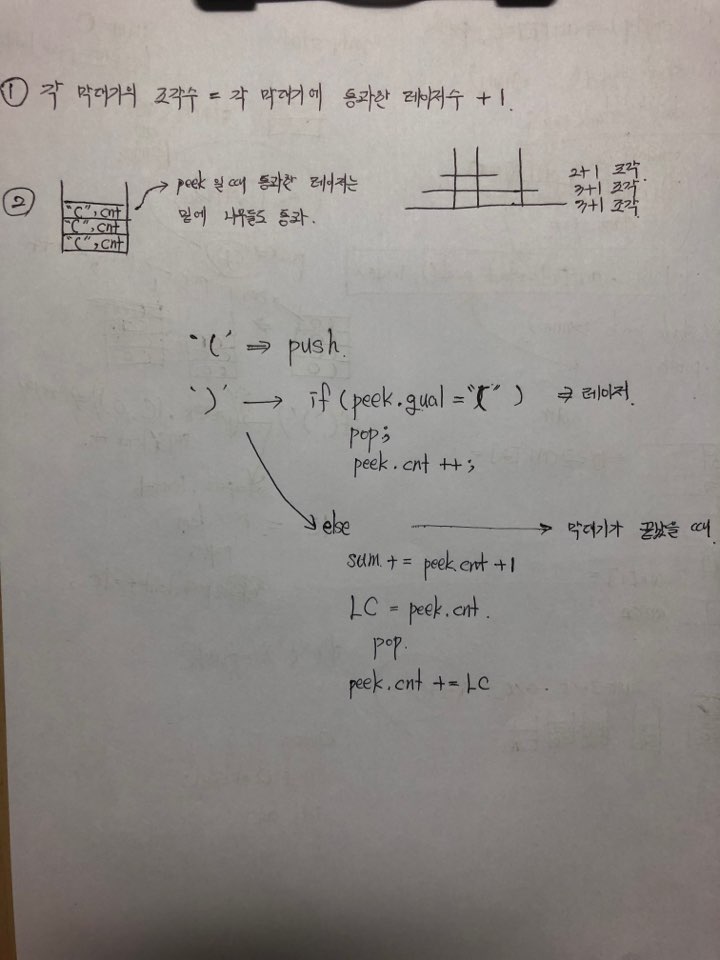 ① 각 막대기의 조각수 = 각 막대기에 통과한 레이저수 + 1.
② peek 일 때 통과한 레이저는
밑에 나무들도 통과.
"(", cnt
"(", cnt
"(", cnt
2+1 조각.
3+1 조각
3+1 조각
'(' ⇒ push.
')' → if (peek.qual = "(") ⇒ 레이저.
pop;
peek.cnt ++;
else → 막대기가 끝났을 때.
sum += peek.cnt +1
LC = peek.cnt.
pop.
peek.cnt += LC